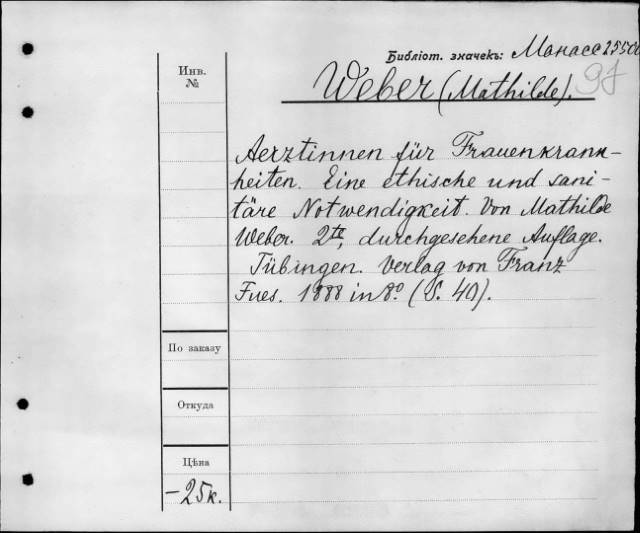 Библіот. значекъ: Манасс 2550
Инв.
№
Weber (Mathilde).
Aerztinnen für Frauenkrank-
heiten. Eine ethische und sani-
täre Notwendigkeit. Von Mathilde
Weber. 2te, durchgesehene Auflage.
Tübingen. Verlag von Franz
Fues. 1888 in 8º (S. 40).
По заказу
Откуда
Цѣна
-25к.